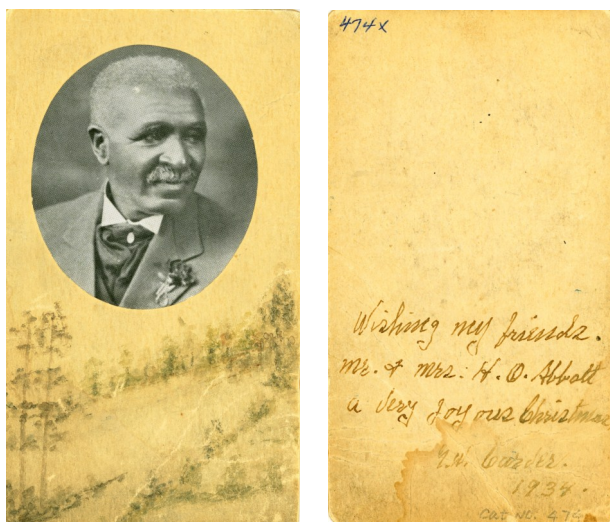 474x
Wishing my friends.
mr. & mrs. H. O. Abbott
a very joyous Christmas
Carver.
1934.
Cat No. 474